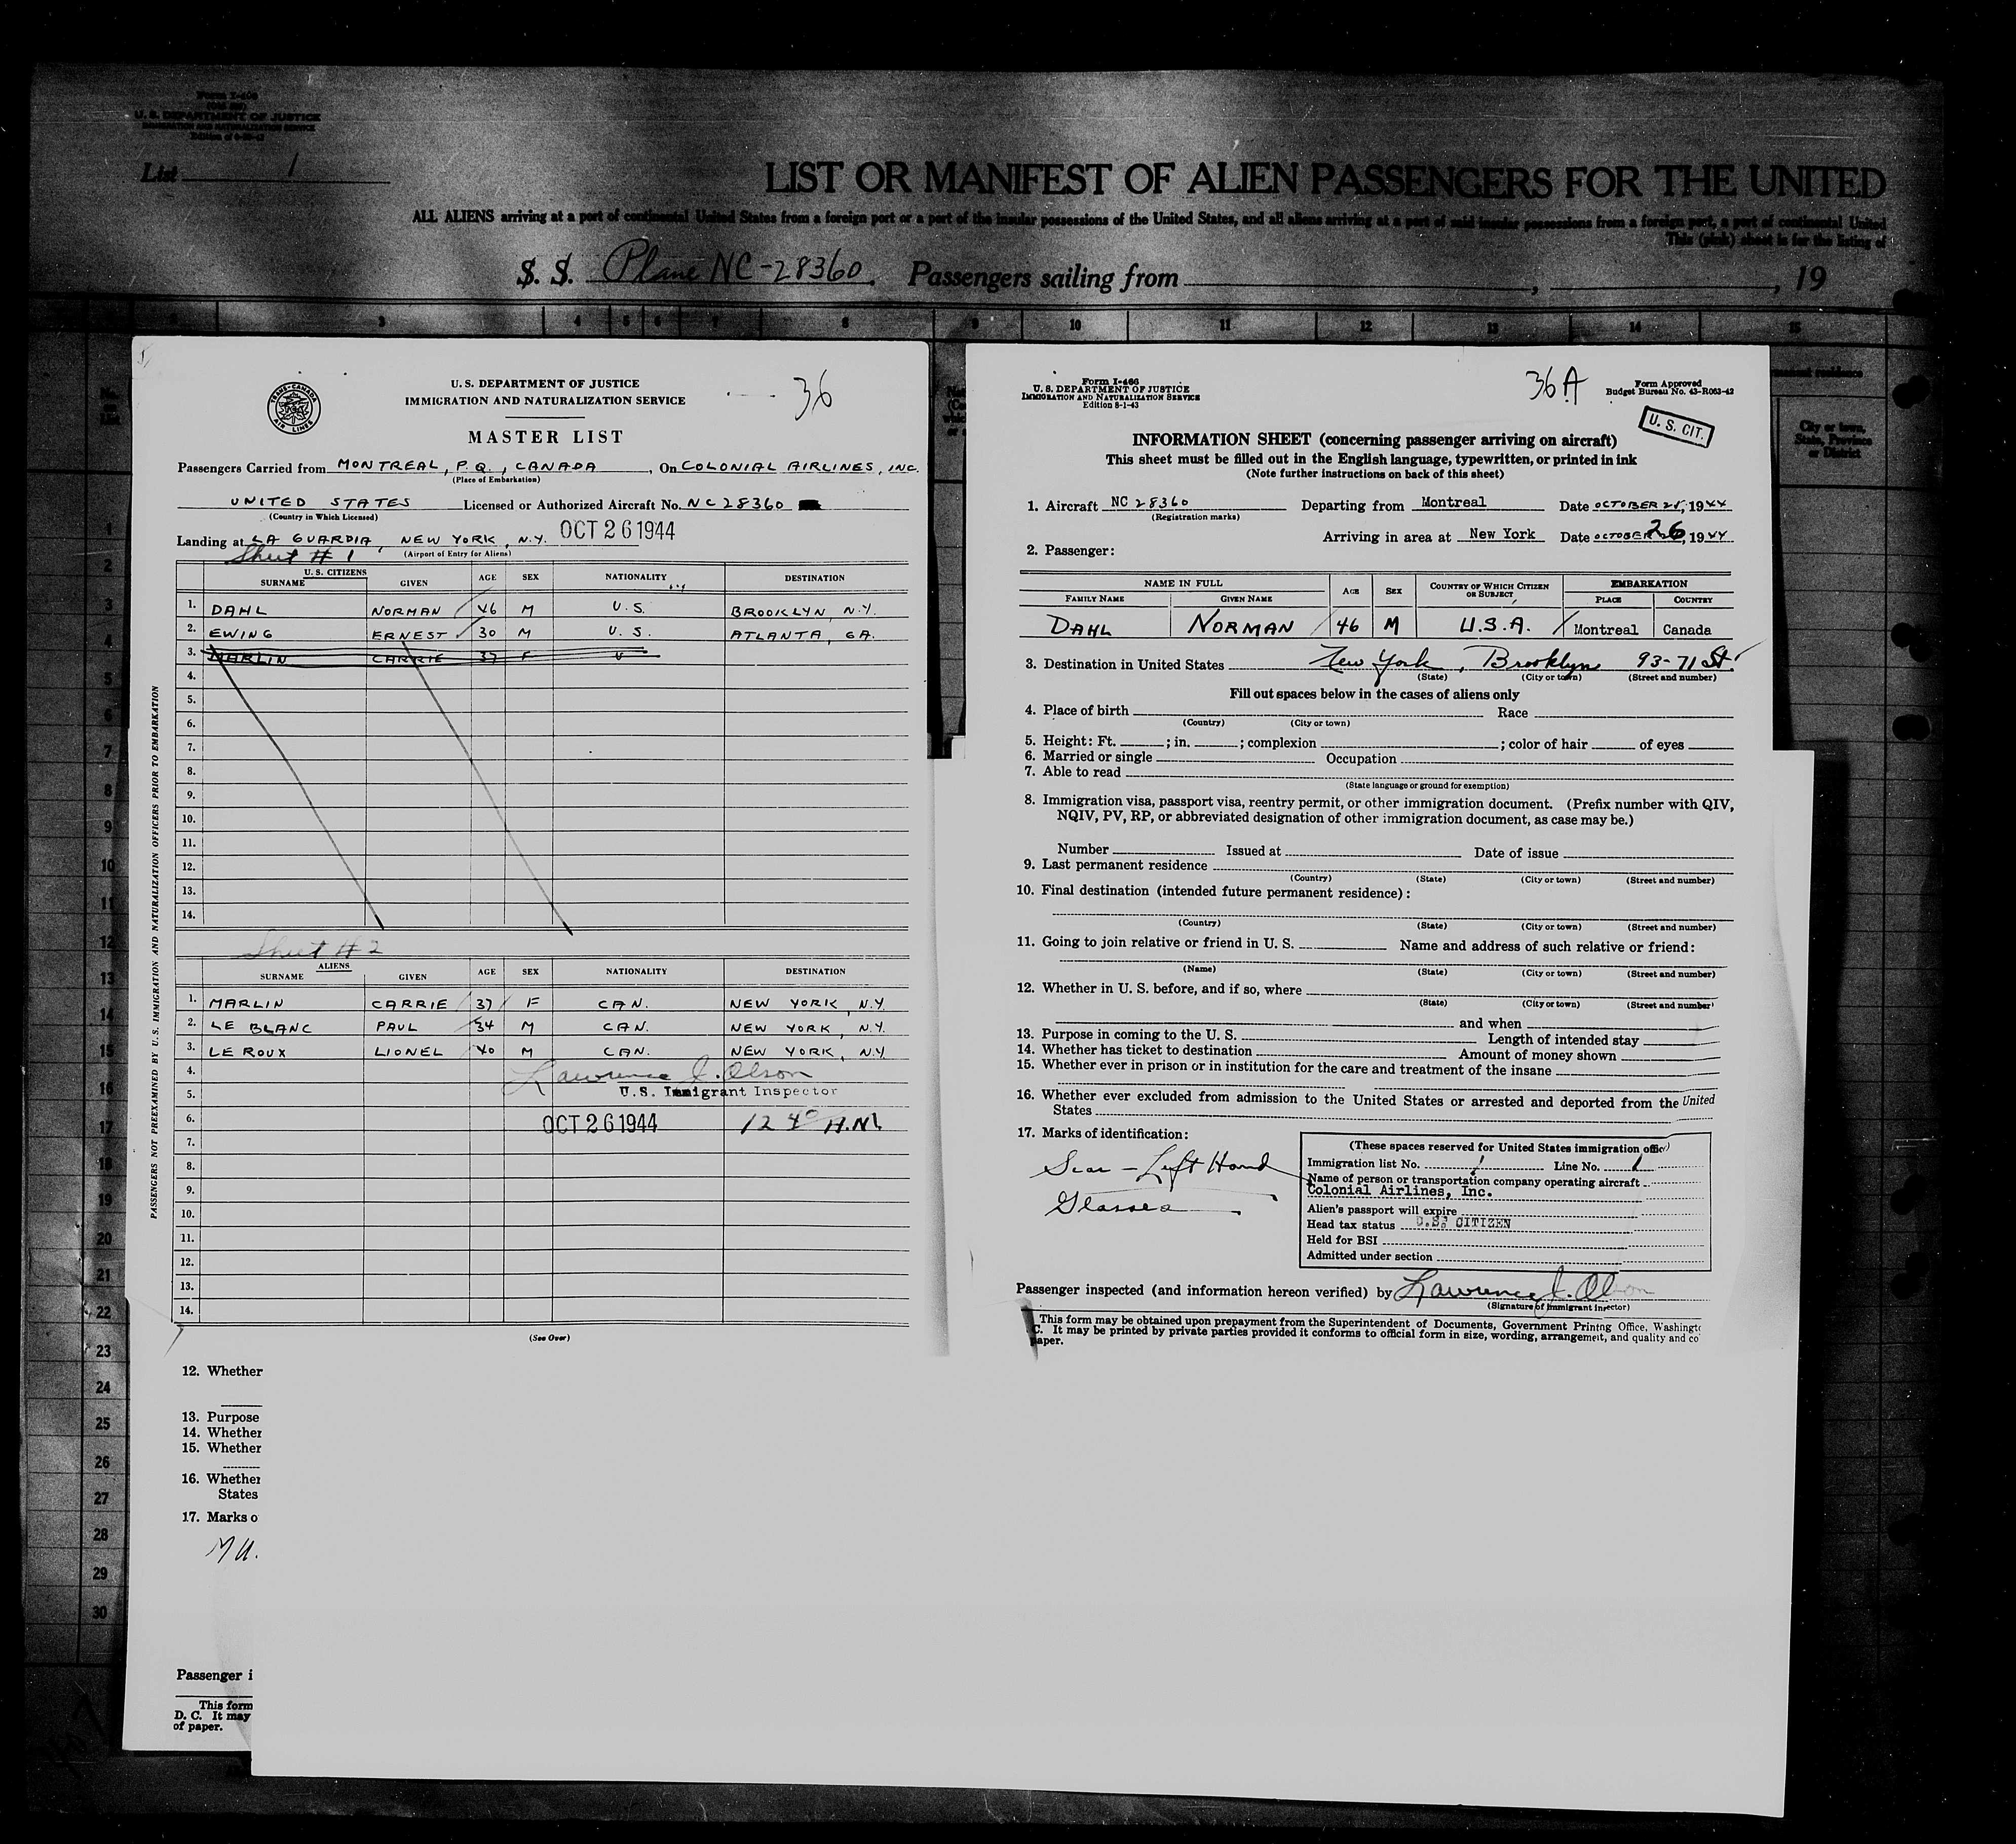 Form I-466
U. S. DEPARTMENT OF JUSTICE
IMMIGRATION AND NATURALIZATION SERVICE
List 1
LIST OR MANIFEST OF ALIEN PASSENGERS FOR THE UNITED
ALL ALIENS arriving at a port of continental United States from a foreign port or a port of the insular possessions of the United States, and all aliens arriving at a port of said insular possessions from a foreign port, a port of continental United
This (pink) sheet is for the listing of
S. S. Plane NC-28360. Passengers sailing from , , 19
3 4 5 6 7 8 9 10 11 12 13 14 15
36
TRANS-CANADA AIR LINES
U. S. DEPARTMENT OF JUSTICE
IMMIGRATION AND NATURALIZATION SERVICE
MASTER LIST
Passengers Carried from MONTREAL, P.Q., CANADA, On COLONIAL AIRLINES, INC.
(Place of Embarkation)
UNITED STATES Licensed or Authorized Aircraft No. NC28360
(Country in Which Licensed)
Landing at LA GUARDIA, NEW YORK, N.Y. OCT 26 1944
(Airport of Entry for Aliens)
Sheet # 1
U. S. CITIZENS
SURNAME GIVEN AGE SEX NATIONALITY DESTINATION
1. DAHL NORMAN 46 M U.S. BROOKLYN, N.Y.
2. EWING ERNEST 30 M U.S. ATLANTA, GA.
3. MARLIN CARRIE 37 F U
4.
5.
6.
7.
8.
9.
10.
11.
12.
13.
14.
Sheet # 2
ALIENS
SURNAME GIVEN AGE SEX NATIONALITY DESTINATION
1. MARLIN CARRIE 37 F CAN. NEW YORK, N.Y.
2. LE BLANC PAUL 34 M CAN. NEW YORK, N.Y.
3. LE ROUX LIONEL 40 M CAN. NEW YORK, N.Y.
4. Lawrence J. Olson
5. U.S. Immigrant Inspector
6. OCT 26 1944 12 40 A.M.
7.
8.
9.
10.
11.
12.
13.
14.
(See Over)
PASSENGERS NOT PREEXAMINED BY U. S. IMMIGRATION AND NATURALIZATION OFFICERS PRIOR TO EMBARKATION
12. Whether
13. Purpose
14. Whether
15. Whether
16. Whether
States
17. Marks o
Passenger i
This form
D. C. It may
of paper.
Form I-466
U. S. DEPARTMENT OF JUSTICE
IMMIGRATION AND NATURALIZATION SERVICE
Edition 8-1-43
36A
Form Approved
Budget Bureau No. 43-R063-42
U. S. CIT.
INFORMATION SHEET (concerning passenger arriving on aircraft)
This sheet must be filled out in the English language, typewritten, or printed in ink
(Note further instructions on back of this sheet)
1. Aircraft NC 28360 Departing from Montreal Date OCTOBER 25, 1944
(Registration marks)
Arriving in area at New York Date OCTOBER 26, 1944
2. Passenger:
NAME IN FULL AGE SEX COUNTRY OF WHICH CITIZEN OR SUBJECT EMBARKATION
FAMILY NAME GIVEN NAME PLACE COUNTRY
DAHL NORMAN 46 M U.S.A. Montreal Canada
3. Destination in United States New York, Brooklyn 93-71 St.
(State) (City or town) (Street and number)
Fill out spaces below in the cases of aliens only
4. Place of birth Race
(Country) (City or town)
5. Height: Ft. ; in. ; complexion ; color of hair of eyes
6. Married or single Occupation
7. Able to read
(State language or ground for exemption)
8. Immigration visa, passport visa, reentry permit, or other immigration document. (Prefix number with QIV,
NQIV, PV, RP, or abbreviated designation of other immigration document, as case may be.)
Number Issued at Date of issue
9. Last permanent residence
(Country) (State) (City or town) (Street and number)
10. Final destination (intended future permanent residence):
(Country) (State) (City or town) (Street and number)
11. Going to join relative or friend in U. S. Name and address of such relative or friend:
(Name) (State) (City or town) (Street and number)
12. Whether in U. S. before, and if so, where
(State) (City or town) (Street and number)
and when
13. Purpose in coming to the U. S. Length of intended stay
14. Whether has ticket to destination Amount of money shown
15. Whether ever in prison or in institution for the care and treatment of the insane
16. Whether ever excluded from admission to the United States or arrested and deported from the United
States
17. Marks of identification:
Scar - Left Hand
Glasses
(These spaces reserved for United States immigration offic
Immigration list No. 1 Line No. 1
Name of person or transportation company operating aircraft
Colonial Airlines, Inc.
Alien's passport will expire
Head tax status U.S. CITIZEN
Held for BSI
Admitted under section
Passenger inspected (and information hereon verified) by Lawrence J. Olson
(Signature of Immigrant Inspector)
This form may be obtained upon prepayment from the Superintendent of Documents, Government Printing Office, Washingt
C. It may be printed by private parties provided it conforms to official form in size, wording, arrangement, and quality and co
paper.
City or town,
State, Province
or District
1
2
3
4
5
6
7
8
9
10
11
12
13
14
15
16
17
18
19
20
21
22
23
24
25
26
27
28
29
30